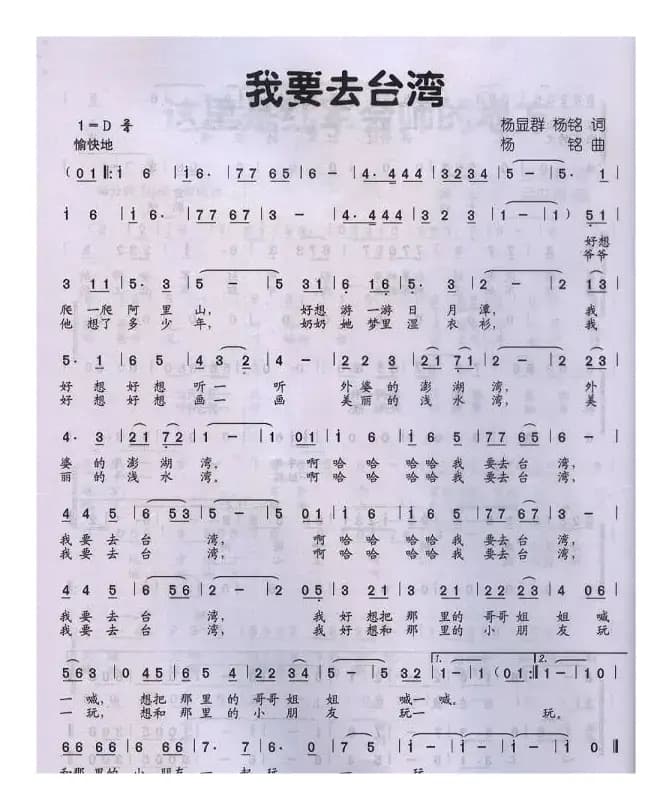 我要去台湾
1=D 2/4
愉快地
杨显群 杨铭 词
杨 铭 曲
(01‖:i 6 |i 6· |77 65|6 - |4· 444|3234|5 - |5· 1|
i 6 |i 6· |77 67|3 - |4· 444|3 2 3|1 - |1) 51|
好想
爷爷
3 11|5· 3|5 - |5 31|6 16|5· 3|2 - |2 13|
爬 一爬 阿 里 山, 好想 游 一游 日 月 潭, 我
他 想了 多 少 年, 奶奶 她 梦里 湿 衣 衫, 我
5· 1|65 6|4 3 2|4 - |2 2 3|21 71|2 - |2 23|
好 想 好 想 听 一 听 外 婆 的 澎 湖 湾, 外
好 想 好 想 画 一 画 美 丽 的 浅 水 湾, 美
4· 3|21 72|1 - |1 01|i 6|i 6 5|77 65|6 - |
婆 的 澎 湖 湾。 啊 哈 哈 哈哈 我 要去 台 湾,
丽 的 浅 水 湾。 啊 哈 哈 哈哈 我 要去 台 湾,
4 4 5|6 53|5 - |5 01|i 6|i 6 5|77 67|3 - |
我 要 去 台 湾, 啊 哈 哈 哈哈 我 要去 台 湾,
我 要 去 台 湾, 啊 哈 哈 哈哈 我 要去 台 湾,
4 4 5|6 56|2 - |2 05|3 21|6 5 6|2 23 4|06|
我 要 去 台 湾, 我 好 想把 那 里的 哥哥 姐 姐 喊
我 要 去 台 湾, 我 好 想和 那 里的 小 朋 友 玩
563|0 45|65 4|22 34|5 - |5 32|1 - |1 (01:|1 - |1 0|
1. 2.
一 喊, 想把 那 里 的 哥哥 姐 姐 喊 一 喊。
一 玩, 想和 那 里 的 小 朋 友 玩 一 玩。
66 66|66 6|7· 7|6· 7|i - |i - |i - |i 0‖
和那 里的 小 朋友 一 起 玩 一 玩。